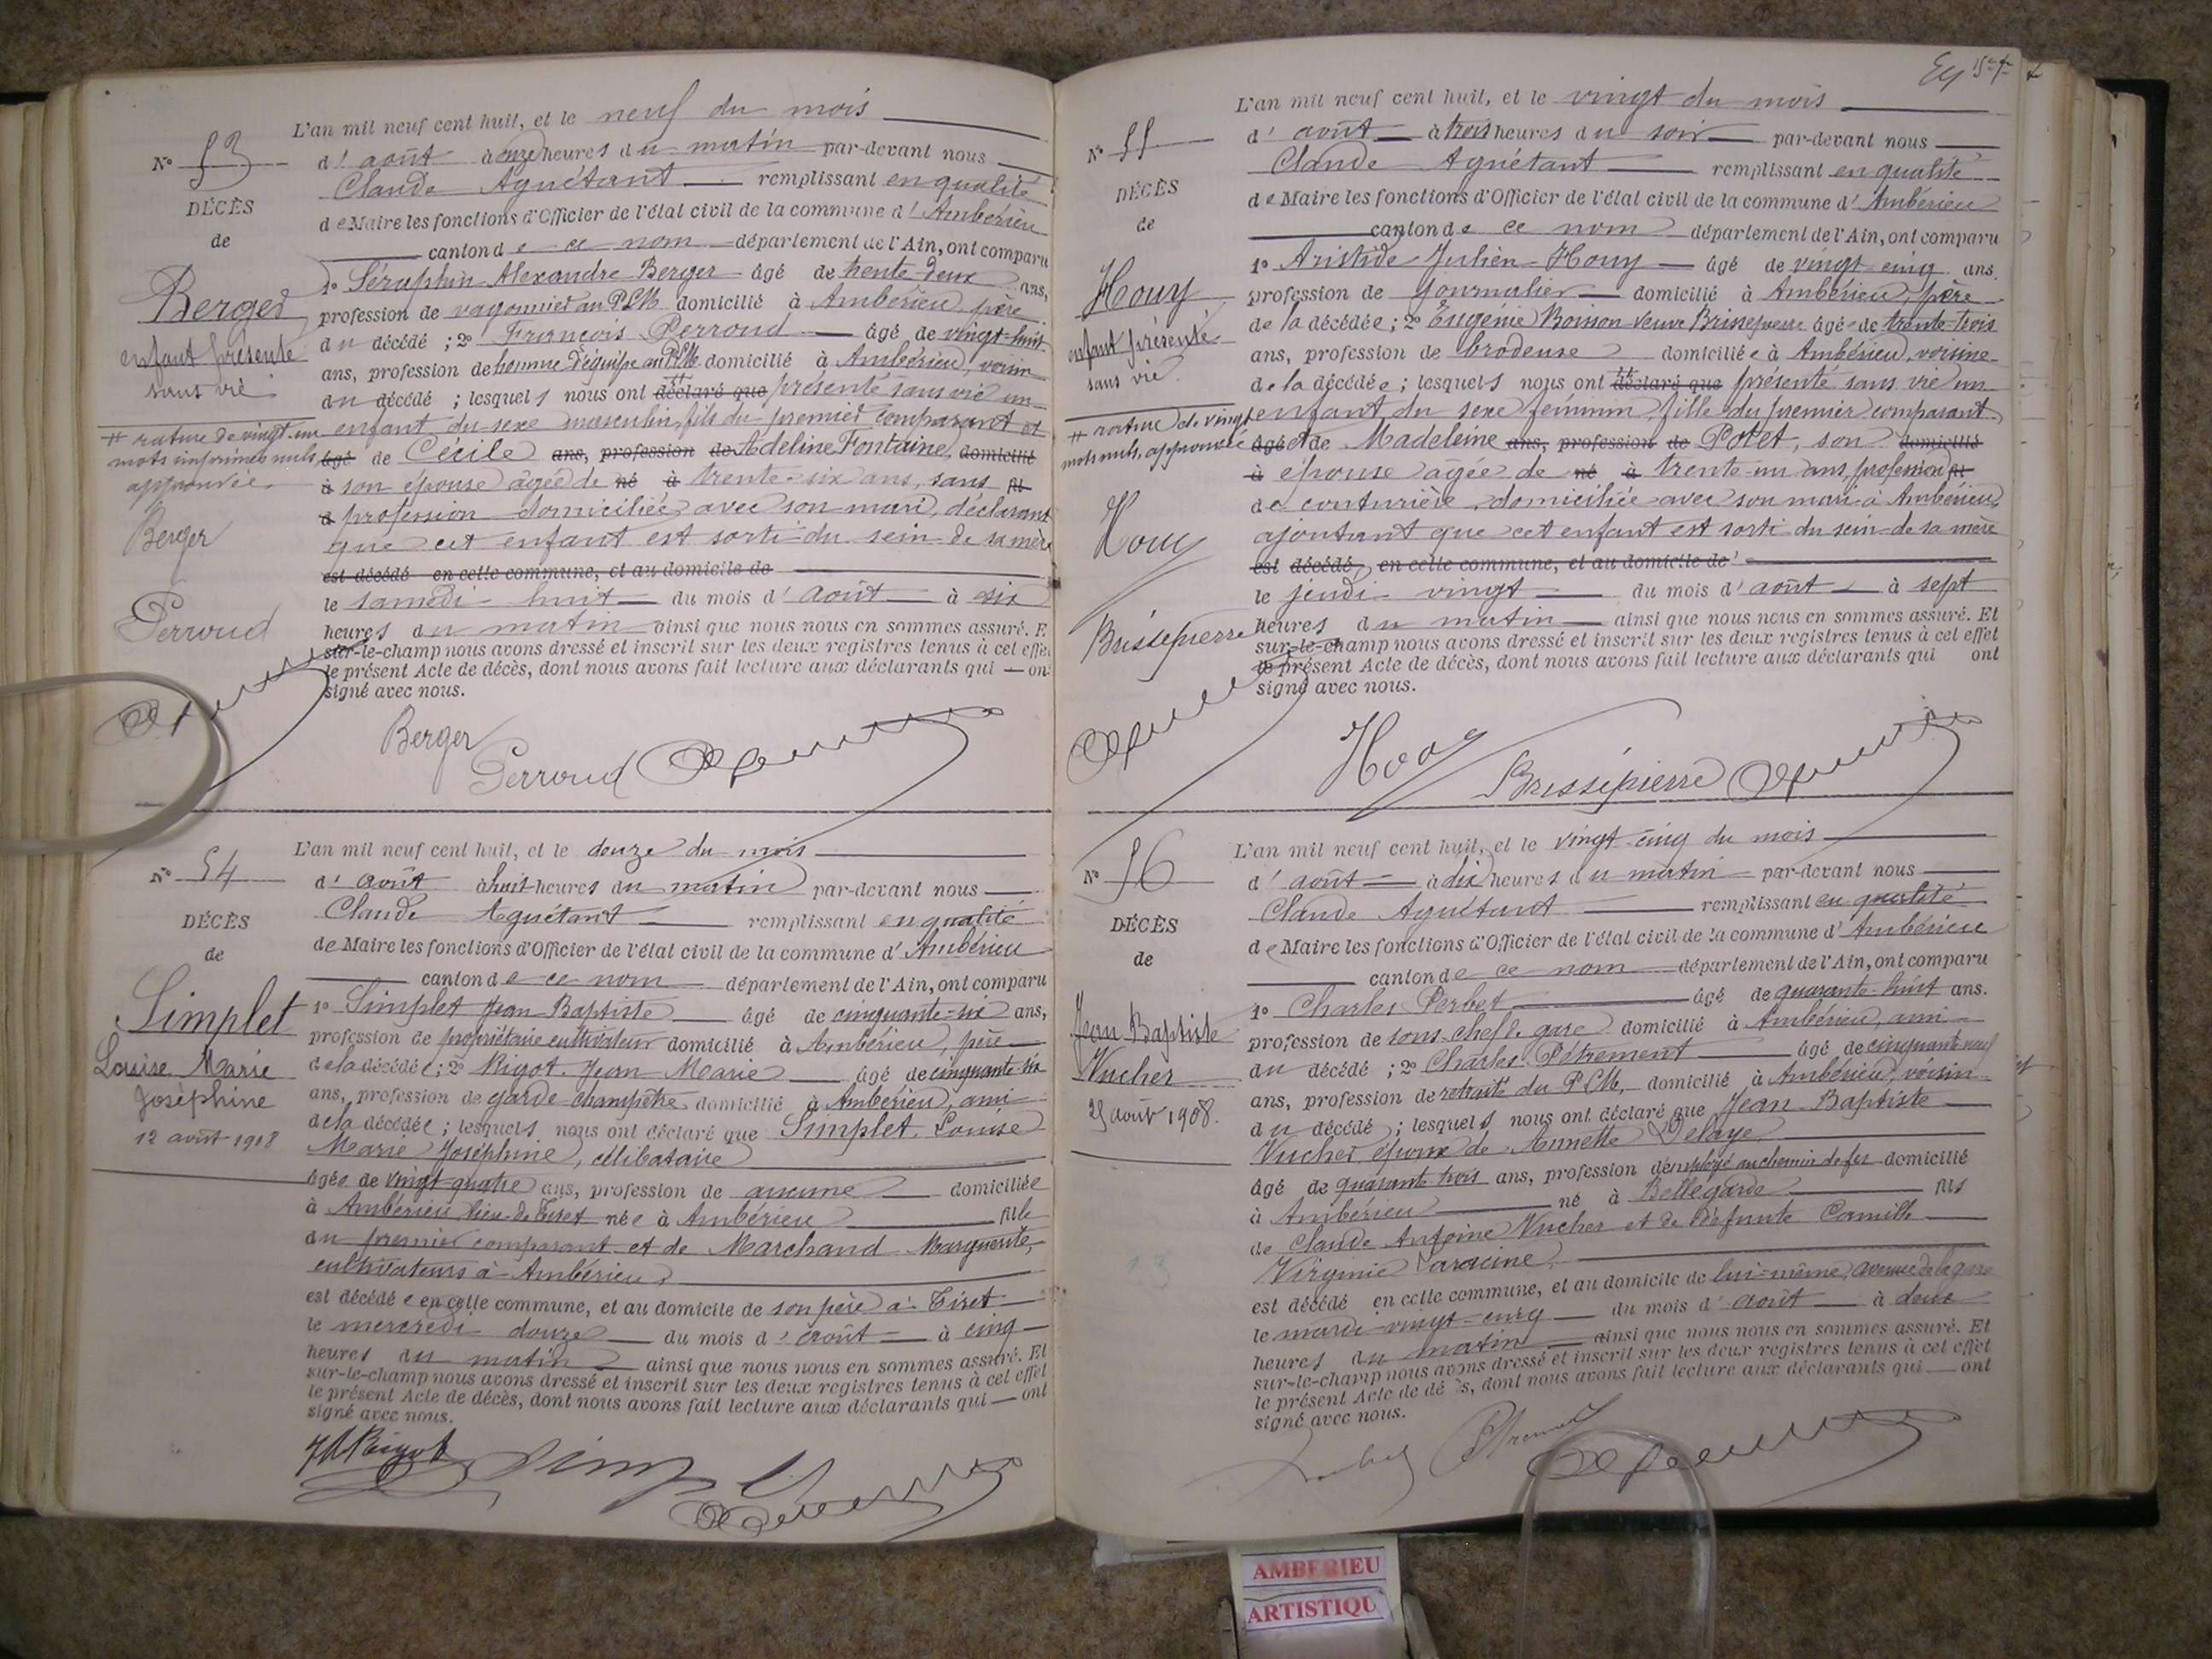 L'an mil neuf cent huit, et le neuf du mois
N° 53
d'août à onze heures du matin par-devant nous
Claude Aguétant remplissant en qualité
DÉCÈS
de Maire les fonctions d'Officier de l'état civil de la commune d'Ambérieu
de
canton de ce nom département de l'Ain, ont comparu
1° Séraphin Alexandre Berger âgé de trente-deux ans,
Berger
profession de wagonnier au PLM domicilié à Ambérieu, père
enfant présenté
sans vie
du décédé ; 2° François Perroud âgé de vingt-huit
ans, profession de homme d'équipe au PLM domicilié à Ambérieu, voisin
du décédé ; lesquels nous ont déclaré que présenté sans vie un
enfant du sexe masculin, fils du premier comparant et
# rature de vingt-un
mots imprimés nuls
approuvée.
âgé de Cécile ans, profession de Adeline Fontaine, domicilié
à son épouse âgée de né à trente-six ans, sans fil
d profession domiciliée avec son mari, déclarant
que cet enfant est sorti du sein de sa mère
Berger
est décédé en cette commune, et au domicile de
le samedi huit du mois d'août à six
Perroud
heures du matin ainsi que nous nous en sommes assuré. E
sur-le-champ nous avons dressé et inscrit sur les deux registres tenus à cet effet
le présent Acte de décès, dont nous avons fait lecture aux déclarants qui ont
signé avec nous.
Berger
Perroud
L'an mil neuf cent huit, et le douze du mois
N° 54
d'août à huit heures du matin par-devant nous
Claude Aguétant remplissant en qualité
DÉCÈS
de Maire les fonctions d'Officier de l'état civil de la commune d'Ambérieu
de
canton de ce nom département de l'Ain, ont comparu
Simplet
Louise Marie
Joséphine
12 août 1908
1° Simplet Jean Baptiste âgé de cinquante-six ans,
profession de propriétaire cultivateur domicilié à Ambérieu, père
de la décédée ; 2° Rigot Jean Marie âgé de cinquante-six
ans, profession de garde champêtre domicilié à Ambérieu, ami
de la décédée ; lesquels nous ont déclaré que Simplet Louise
Marie Joséphine, célibataire
âgée de vingt-quatre ans, profession de aucune domiciliée
à Ambérieu lieu de Tiret née à Ambérieu fille
du premier comparant et de Marchand Marguerite,
cultivateurs à Ambérieu
est décédée en cette commune, et au domicile de son père à Tiret
le mercredi douze du mois d'août à cinq
heures du matin ainsi que nous nous en sommes assuré. Et
sur-le-champ nous avons dressé et inscrit sur les deux registres tenus à cet effet
le présent Acte de décès, dont nous avons fait lecture aux déclarants qui ont
signé avec nous.
JM Rigot
L'an mil neuf cent huit, et le vingt du mois
N° 55
d'août à trois heures du soir par-devant nous
Claude Aguétant remplissant en qualité
DÉCÈS
de Maire les fonctions d'Officier de l'état civil de la commune d'Ambérieu
de
canton de ce nom département de l'Ain, ont comparu
1° Aristide Julien Houy âgé de vingt-cinq ans.
Houy
profession de journalier domicilié à Ambérieu, père
de la décédée ; 2° Eugénie Boisson veuve Brissepierre âgée de trente-trois
enfant présenté
sans vie.
ans, profession de brodeuse domiciliée à Ambérieu, voisine
de la décédée ; lesquels nous ont déclaré que présenté sans vie un
enfant du sexe féminin, fille du premier comparant
# rature de vingt
mots nuls, approuvée
âgé et de Madeleine ans, profession de Potet, son domicilié
à épouse âgée de né à trente-un ans, profession fil
de couturière domiciliée avec son mari à Ambérieu,
ajoutant que cet enfant est sorti du sein de sa mère
Houy
est décédé, en cette commune, et au domicile de
le jeudi vingt du mois d'août à sept
Brissepierre
heures du matin ainsi que nous nous en sommes assuré. Et
sur-le-champ nous avons dressé et inscrit sur les deux registres tenus à cet effet
le présent Acte de décès, dont nous avons fait lecture aux déclarants qui ont
signé avec nous.
Houy
Brissepierre
L'an mil neuf cent huit, et le vingt-cinq du mois
N° 56
d'août à dix heures du matin par-devant nous
Claude Aguétant remplissant en qualité
DÉCÈS
de Maire les fonctions d'Officier de l'état civil de la commune d'Ambérieu
de
canton de ce nom département de l'Ain, ont comparu
1° Charles Perbet âgé de quarante-huit ans.
Jean Baptiste
Vucher
25 août 1908.
profession de sous-chef de gare domicilié à Ambérieu, ami
du décédé ; 2° Charles Pétrement âgé de cinquante-neuf
ans, profession de retraité du PLM, domicilié à Ambérieu, voisin
du décédé ; lesquels nous ont déclaré que Jean Baptiste
Vucher, époux de Annette Delaye
âgé de quarante trois ans, profession d'employé au chemin de fer domicilié
à Ambérieu né à Bellegarde fils
de Claude Antoine Vucher et de défunte Camille
Virginie
est décédé en cette commune, et au domicile de lui-même, avenue de la gare
le mardi vingt-cinq du mois d'août à deux
heures du matin ainsi que nous nous en sommes assuré. Et
sur-le-champ nous avons dressé et inscrit sur les deux registres tenus à cet effet
le présent Acte de décès, dont nous avons fait lecture aux déclarants qui ont
signé avec nous.
AMBERIEU
ARTISTIQU